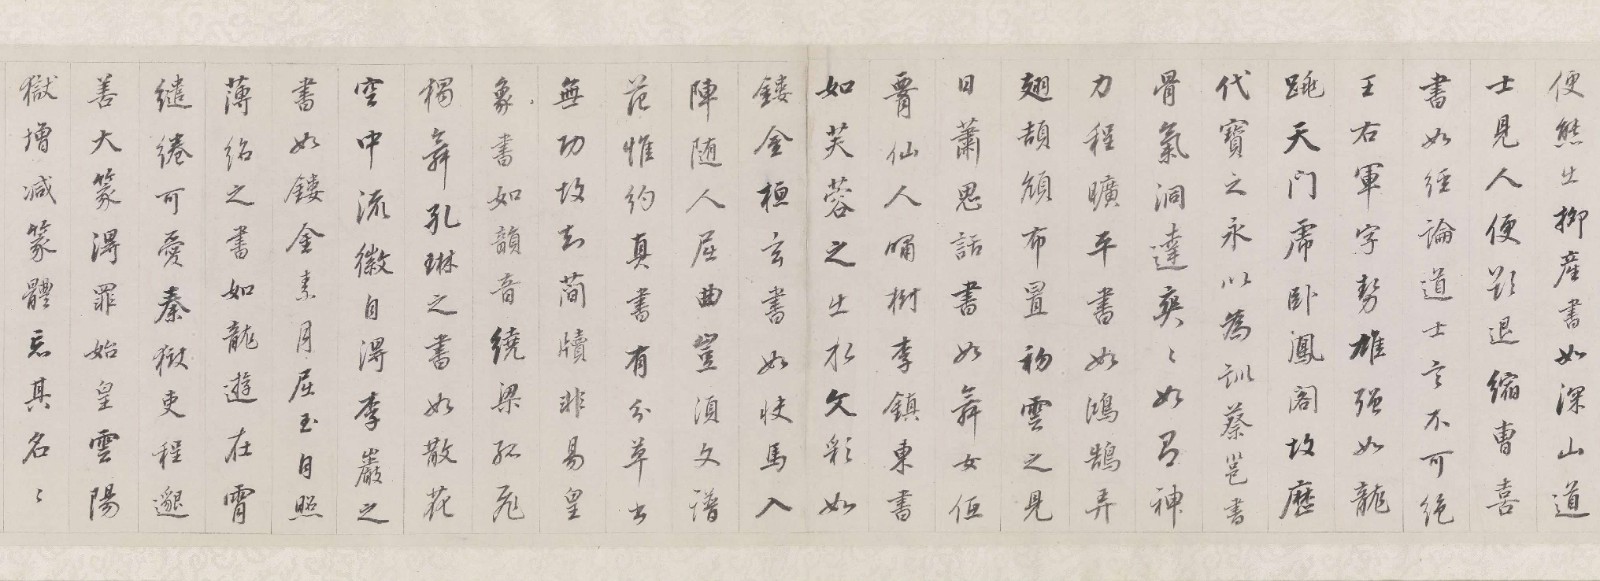 便態出柳産書如深山道
士見人便欲退縮曹喜
書如經論道士言不可絕
王右軍字勢雄强如龍
跳天门虎卧鳳閣故歷
代寶之永以為訓蔡邕書
骨氣洞達爽〻如有神
力程曠平書如鴻鵠弄
翅頡頏布置初雲之見
日蕭思話書如舞女低
腰仙人嘯樹李鎮東書
如芙蓉之出水文彩如
鏤金桓玄書如快馬入
陣随人屈曲豈須文譜
范惟約真書有分草書
無功故知簡牘非易皇
象書如韻音繞梁孤飛
獨舞孔琳之書如散花
空中流徽自得李巖之
書如鏤金素月屈玉自照
薄紹之書如龍遊在霄
繾綣可愛秦獄吏程邈
善大篆得罪始皇雲陽
獄增减篆體去其名〻